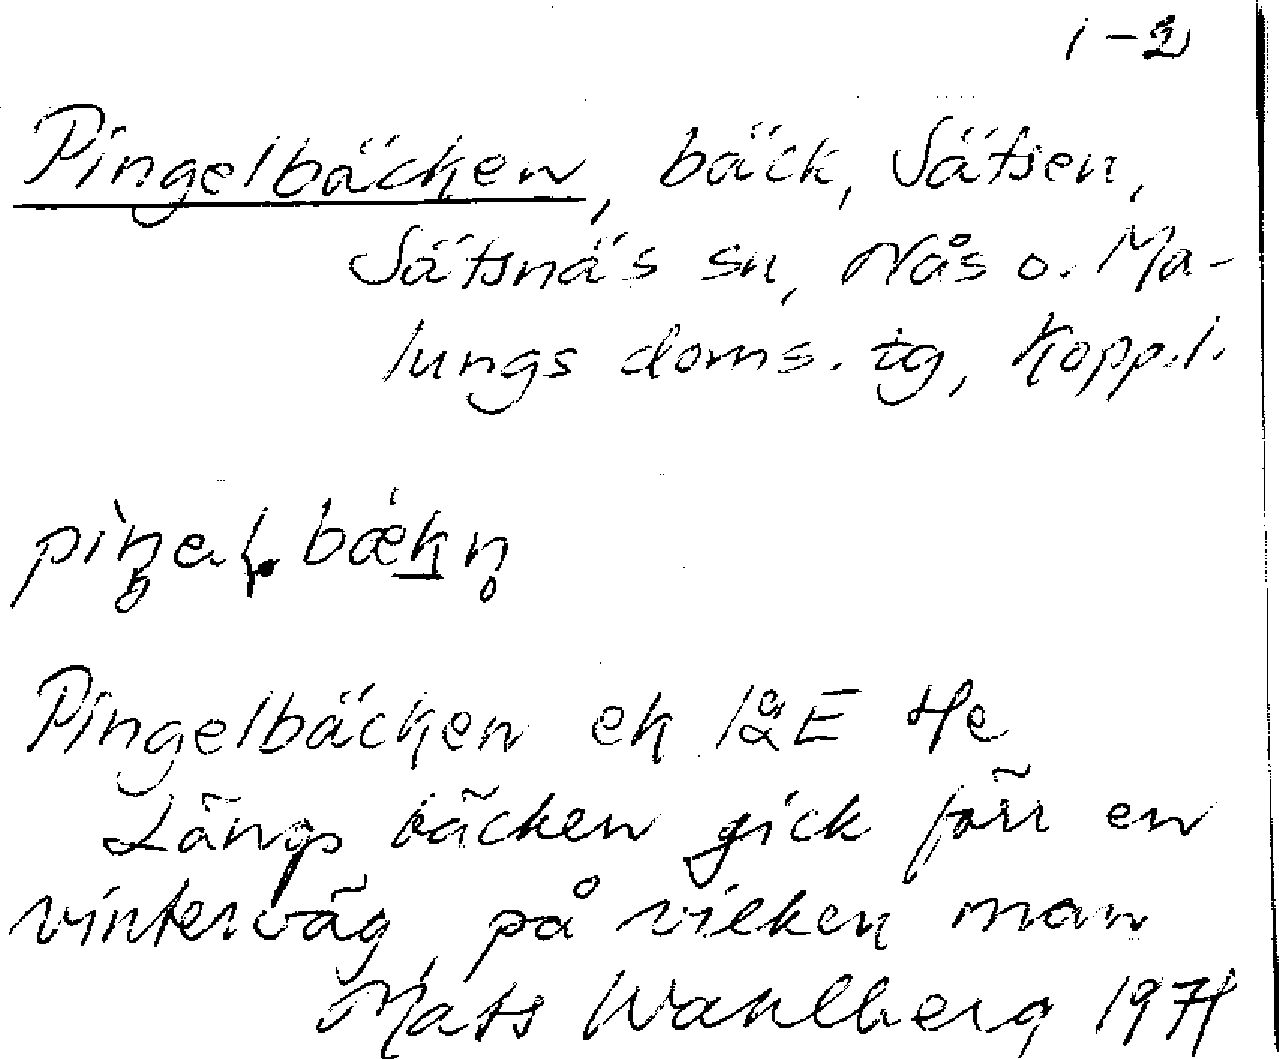 1-2
Pingelbäcken, bäck, Sätsen,
Sätsnäs sn, Nås o. Ma-
lungs doms. tg, Kopp.l.
Pingelbäcken ek 12E 4e
Längs bäcken gick förr en
vinterväg, på vilken man
Mats Wahlberg 1971